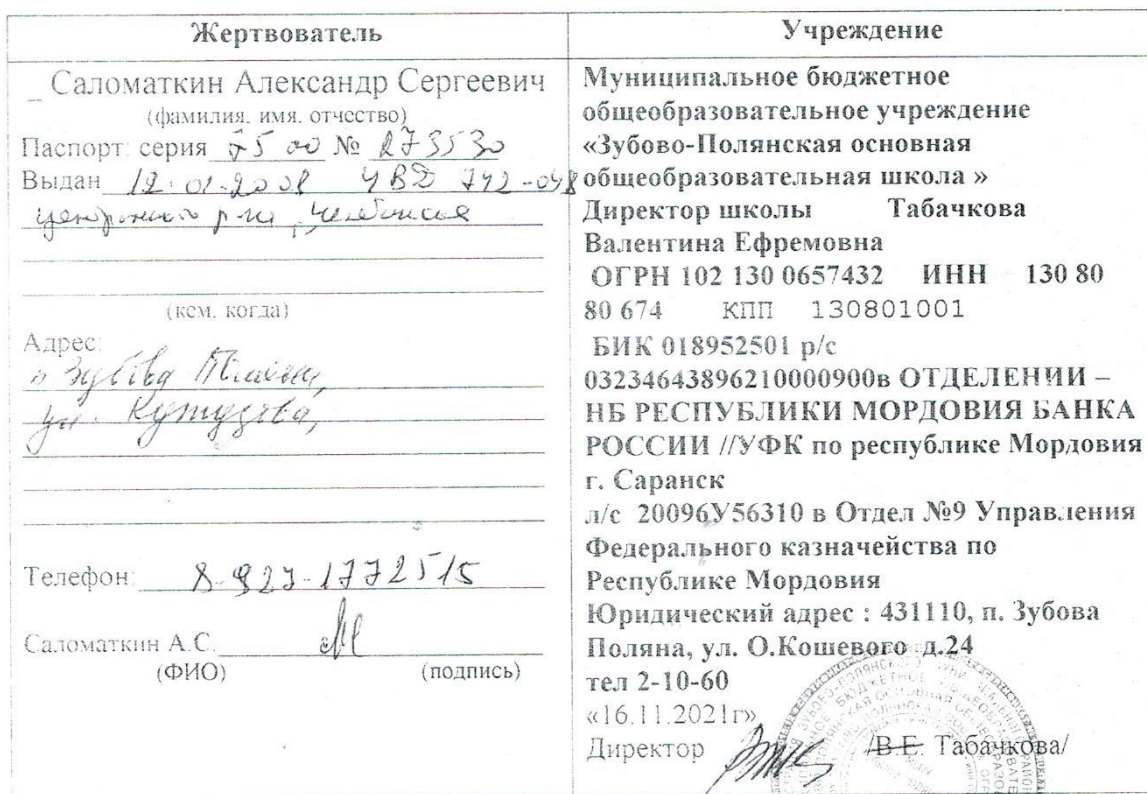 Жертвователь
Саломаткин Александр Сергеевич
(фамилия, имя, отчество)
Паспорт: серия 75 00 № 273530
Выдан 12.01.2001 УВД 742-048
Центрального р-на г. Челябинска
(кем, когда)
Адрес:
п. Зубова Поляна,
ул. Кутузова,
Телефон: 8-927-1772515
Саломаткин А.С.
(ФИО) (подпись)
Учреждение
Муниципальное бюджетное
общеобразовательное учреждение
«Зубово-Полянская основная
общеобразовательная школа »
Директор школы Табачкова
Валентина Ефремовна
ОГРН 102 130 0657432 ИНН 130 80
80 674 КПП 130801001
БИК 018952501 р/с
03234643896210000900в ОТДЕЛЕНИИ –
НБ РЕСПУБЛИКИ МОРДОВИЯ БАНКА
РОССИИ //УФК по республике Мордовия
г. Саранск
л/с 20096У56310 в Отдел №9 Управления
Федерального казначейства по
Республике Мордовия
Юридический адрес : 431110, п. Зубова
Поляна, ул. О.Кошевого д.24
тел 2-10-60
«16.11.2021г»
Директор /В.Е. Табачкова/